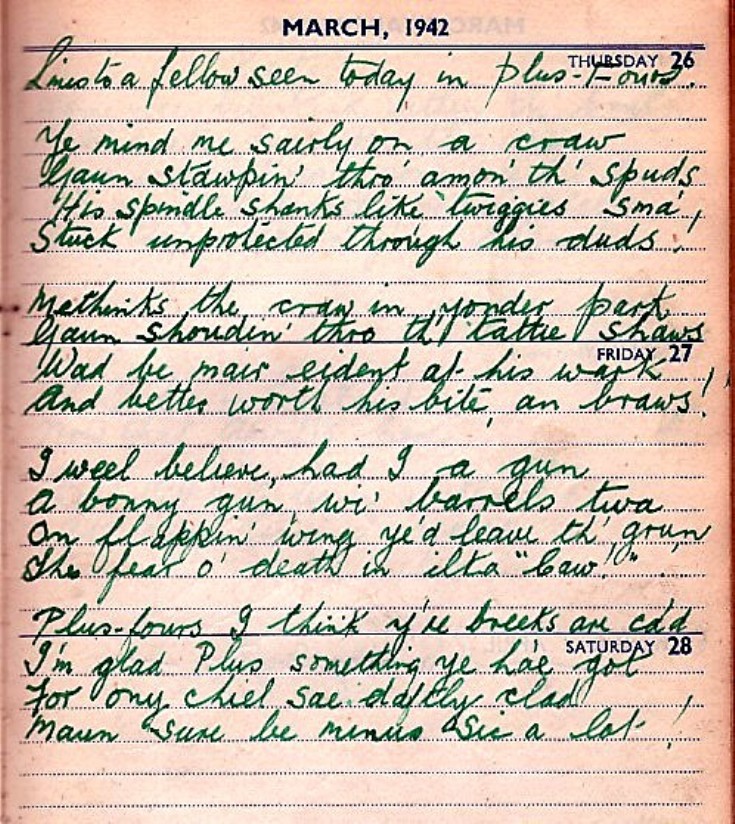 MARCH, 1942
THURSDAY 26
Lines to a fellow seen today in plus-fours.
Ye mind me sairly on a craw
Gaun stawpin' thro' amon' th' spuds
His spindle shanks like twiggies sma',
Stuck unprotected through his duds!
Methinks the craw in yonder park
Gaun shoudin' thro th' tattie shaws
FRIDAY 27
Wad be mair eident at his wark
And better worth his bite, an braws!
I weel believe, had I a gun
A bonny gun, wi' barrels twa
On flappin' wing ye'd leave th' grun
The fear o' death in ilka "Caw!"
Plus-fours I think y're breeks are ca'd
SATURDAY 28
I'm glad Plus something ye hae got
For ony chiel sae daftly clad
Maun sure be minus sic a lot!